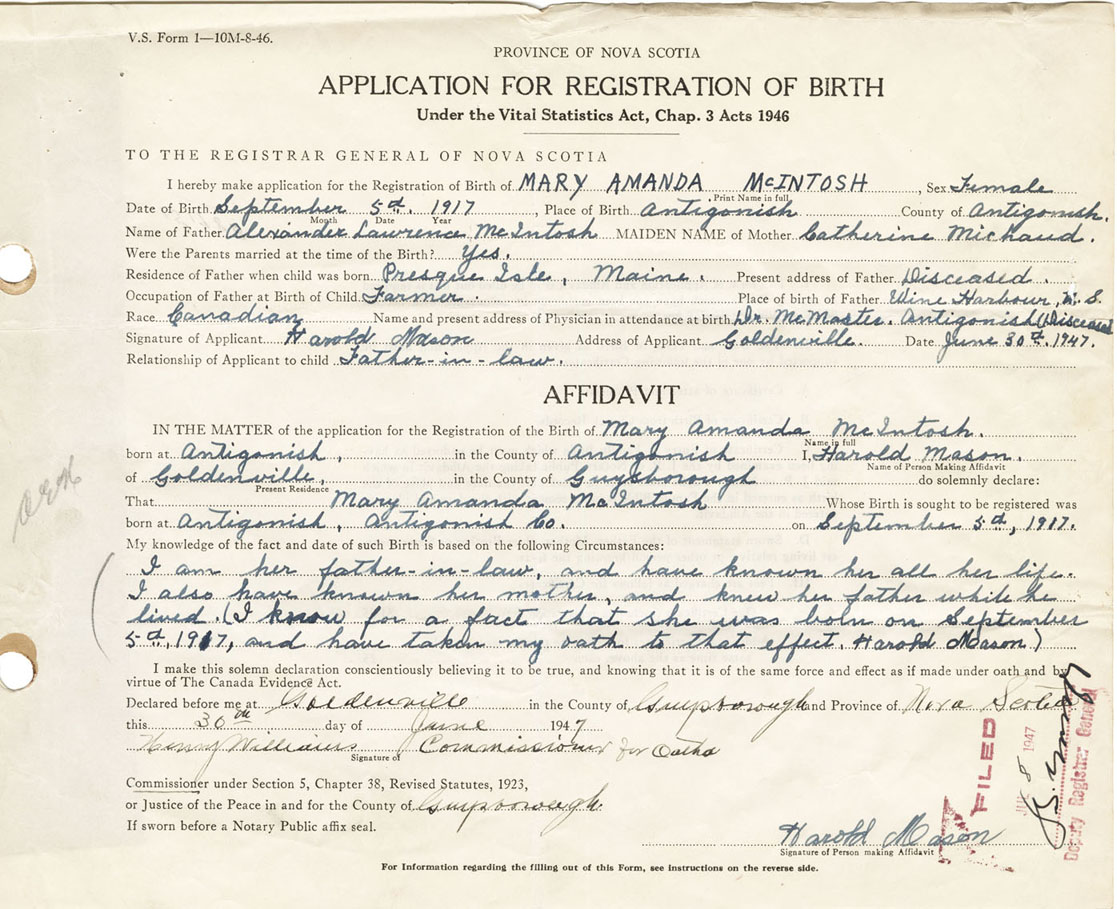 V.S. Form 1—10M-8-46.
PROVINCE OF NOVA SCOTIA
APPLICATION FOR REGISTRATION OF BIRTH
Under the Vital Statistics Act, Chap. 3 Acts 1946
TO THE REGISTRAR GENERAL OF NOVA SCOTIA
I hereby make application for the Registration of Birth of MARY AMANDA McINTOSH, Sex Female
Print Name in full
Date of Birth September 5th, 1917, Place of Birth Antigonish County of Antigonish.
Month Date Year
Name of Father Alexander Lawrence McIntosh MAIDEN NAME of Mother Catherine Michaud.
Were the Parents married at the time of the Birth? Yes.
Residence of Father when child was born Presque Isle, Maine. Present address of Father Disceased.
Occupation of Father at Birth of Child Farmer. Place of birth of Father Wine Harbour, N.S.
Race Canadian Name and present address of Physician in attendance at birth Dr. McMaster. Antigonish (Disceased
Signature of Applicant Harold Mason Address of Applicant Goldenville. Date June 30th, 1947.
Relationship of Applicant to child Father-in-law.
AFFIDAVIT
IN THE MATTER of the application for the Registration of the Birth of Mary Amanda McIntosh.
Name in full
born at Antigonish, in the County of Antigonish I, Harold Mason.
Name of Person Making Affidavit
of Goldenville, in the County of Guysborough do solemnly declare:
Present Residence
That Mary Amanda McIntosh Whose Birth is sought to be registered was
born at Antigonish, Antigonish Co. on September 5th, 1917.
My knowledge of the fact and date of such Birth is based on the following Circumstances:
I am her father-in-law, and have known her all her life.
I also have known her mother, and knew her father while he
lived. (I know for a fact that she was born on September
5th, 1917, and have taken my oath to that effect. Harold Mason)
I make this solemn declaration conscientiously believing it to be true, and knowing that it is of the same force and effect as if made under oath and by
virtue of The Canada Evidence Act.
Declared before me at Goldenville in the County of Guysborough and Province of Nova Scotia
this 30th day of June 1947
Henry Williams Commissioner for Oaths
Signature of
Commissioner under Section 5, Chapter 38, Revised Statutes, 1923,
or Justice of the Peace in and for the County of Guysborough.
If sworn before a Notary Public affix seal.
Harold Mason
Signature of Person making Affidavit
For Information regarding the filling out of this Form, see instructions on the reverse side.
FILED
8 1947
Deputy Registrar General